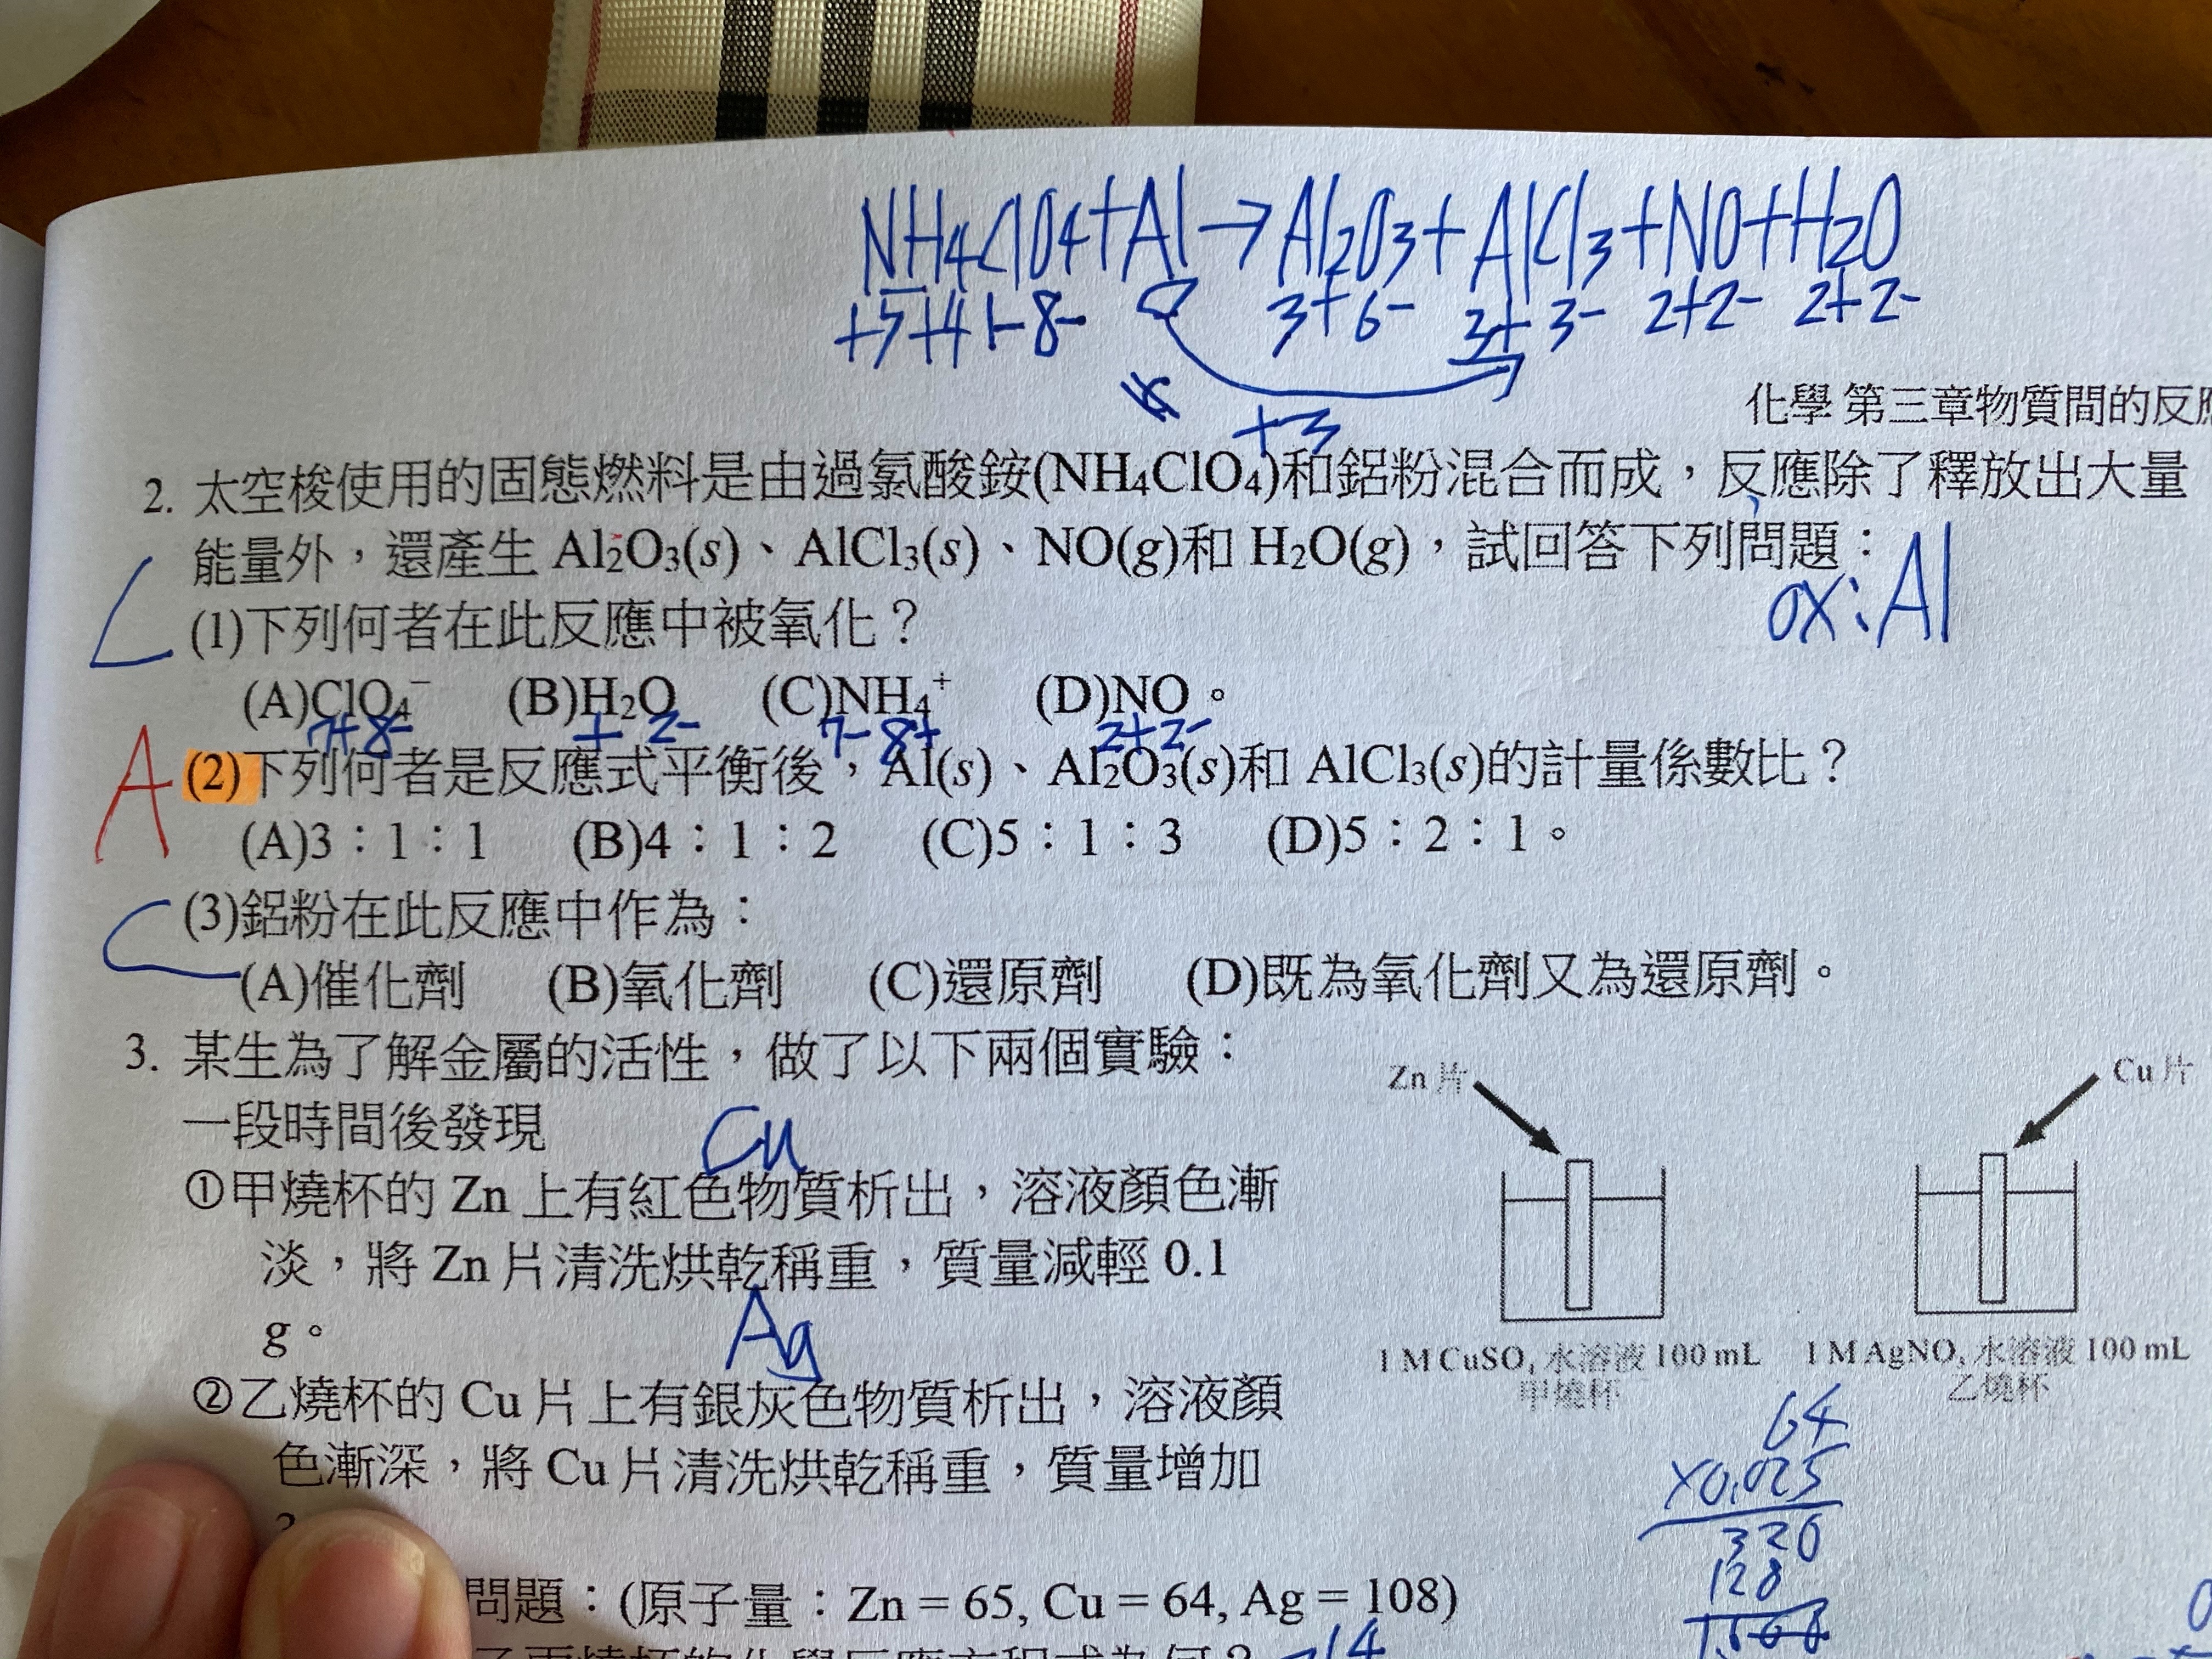 NH4ClO4+Al→Al2O3+AlCl3+NO+H2O
+5+4 1-8- 0 3+6- 3+3- 2+2- 2+2-
+3
化學 第三章物質間的反應
2. 太空梭使用的固態燃料是由過氯酸銨(NH4ClO4)和鋁粉混合而成，反應除了釋放出大量
能量外，還產生 Al2O3(s)、AlCl3(s)、NO(g)和 H2O(g)，試回答下列問題：
ox:Al
C (1)下列何者在此反應中被氧化？
(A)ClO4⁻ (B)H2O (C)NH4⁺ (D)NO。
7+8- + 2- 7- 8+ 2+2-
A (2)下列何者是反應式平衡後，Al(s)、Al2O3(s)和 AlCl3(s)的計量係數比？
(A)3：1：1 (B)4：1：2 (C)5：1：3 (D)5：2：1。
C (3)鋁粉在此反應中作為：
(A)催化劑 (B)氧化劑 (C)還原劑 (D)既為氧化劑又為還原劑。
3. 某生為了解金屬的活性，做了以下兩個實驗：
一段時間後發現
Cu
①甲燒杯的 Zn 上有紅色物質析出，溶液顏色漸
淡，將 Zn 片清洗烘乾稱重，質量減輕 0.1
g。
Ag
②乙燒杯的 Cu 片上有銀灰色物質析出，溶液顏
色漸深，將 Cu 片清洗烘乾稱重，質量增加
Zn 片
Cu 片
1 M CuSO4 水溶液 100 mL
甲燒杯
1 M AgNO3 水溶液 100 mL
乙燒杯
64
×0.025
320
128
問題：(原子量：Zn = 65, Cu = 64, Ag = 108)